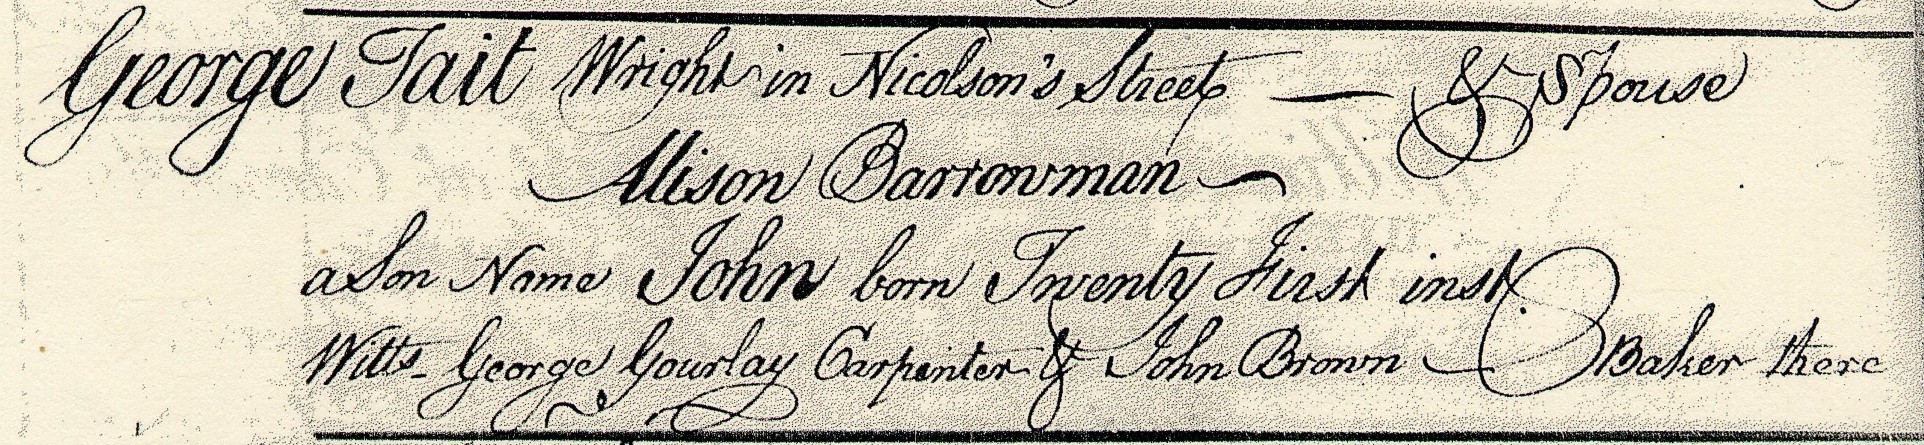 George Tait Wright in Nicolson's Street — & Spouse
Alison Barrowman —
a Son Name John born Twenty First inst
Witts George Gourlay Carpenter & John Brown — Baker there